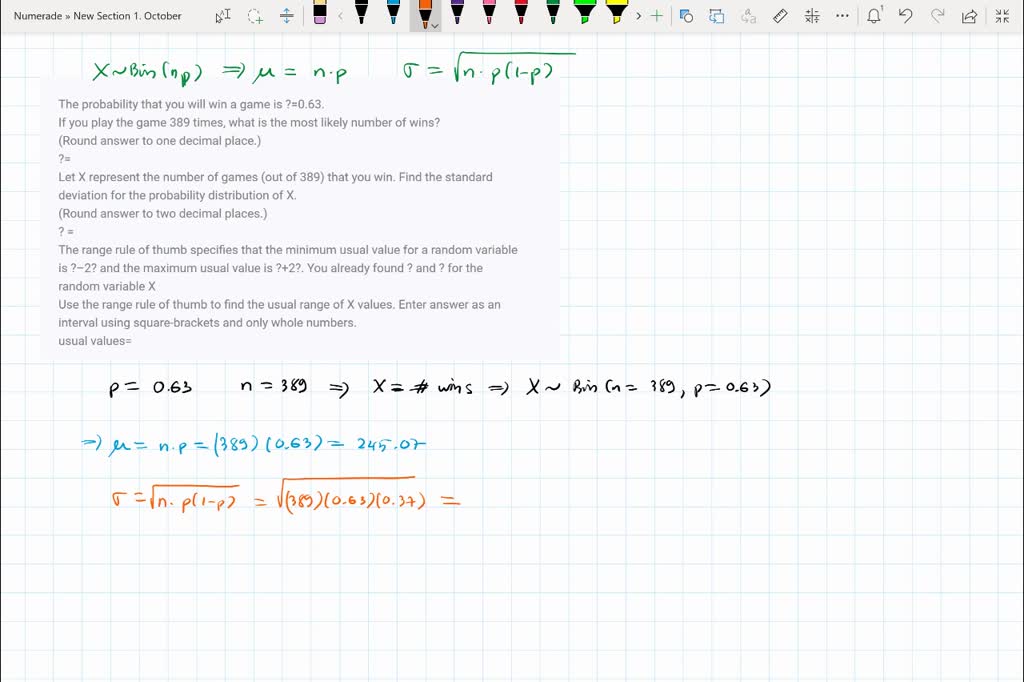 Numerade » New Section 1. October
X~Bin(n,p) ⇒ μ = n·p σ = √n·p(1-p)
The probability that you will win a game is ?=0.63.
If you play the game 389 times, what is the most likely number of wins?
(Round answer to one decimal place.)
?=
Let X represent the number of games (out of 389) that you win. Find the standard
deviation for the probability distribution of X.
(Round answer to two decimal places.)
? =
The range rule of thumb specifies that the minimum usual value for a random variable
is ?−2? and the maximum usual value is ?+2?. You already found ? and ? for the
random variable X
Use the range rule of thumb to find the usual range of X values. Enter answer as an
interval using square-brackets and only whole numbers.
usual values=
p = 0.63 n = 389 ⇒ X = # wins ⇒ X ~ Bin (n = 389, p = 0.63)
⇒ μ = n.p = (389)(0.63) = 245.07
σ = √n. p(1-p) = √(389)(0.63)(0.37) =